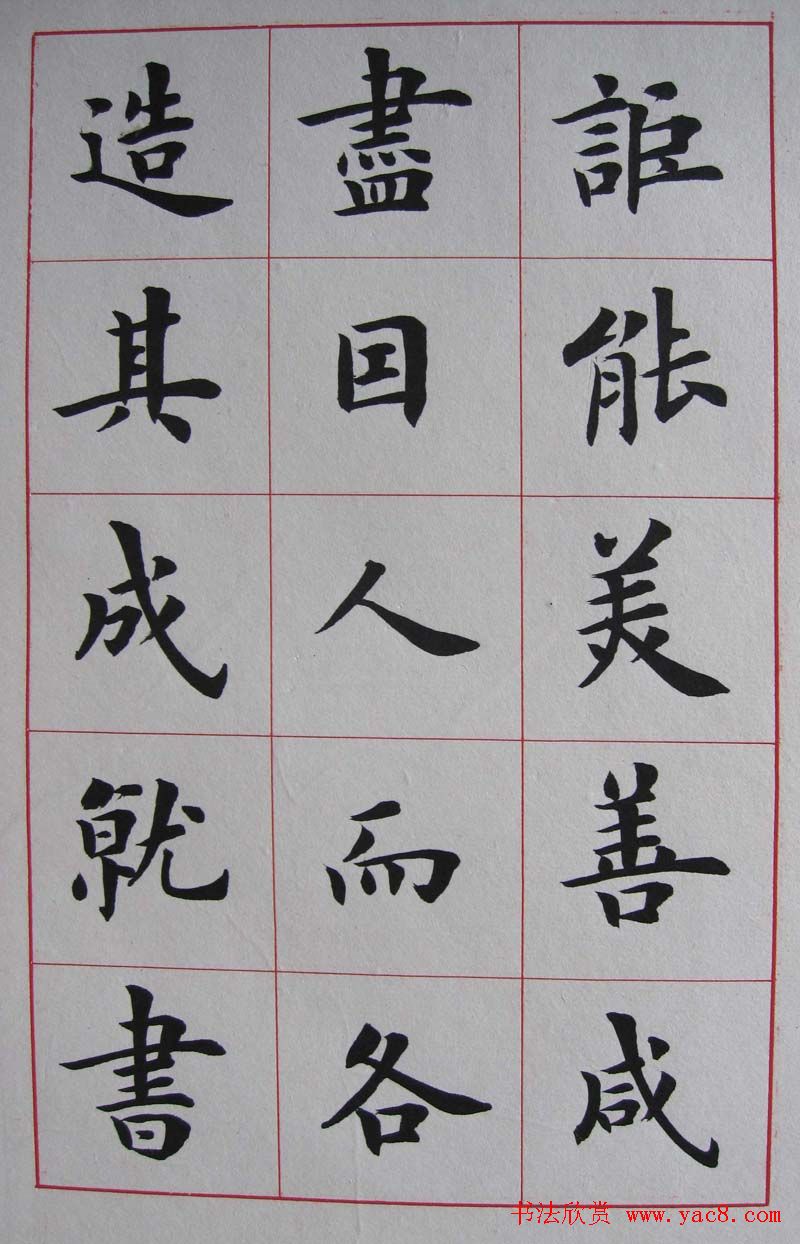 詎能美善咸
盡因人而各
造其成就書
书法欣赏 www.yac8.com